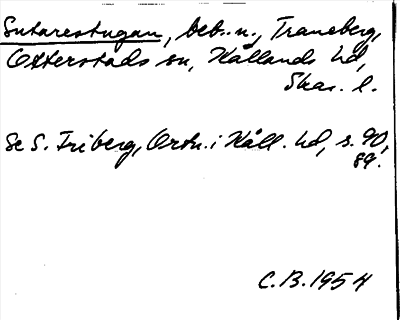 Sutarestugan, beb. n., Traneberg,
Otterstads sn, Kållands hd,
Skar. l.
Se S. Friberg, Ortn. i Kåll. hd, s. 90,
89.
C.B. 1954